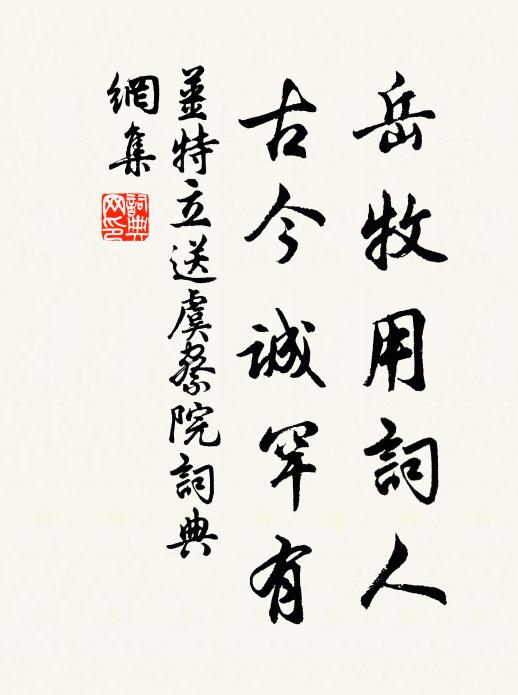 岳牧用詞人
古今誠罕有
姜特立送虞察院詞典
網集
詞典
网印